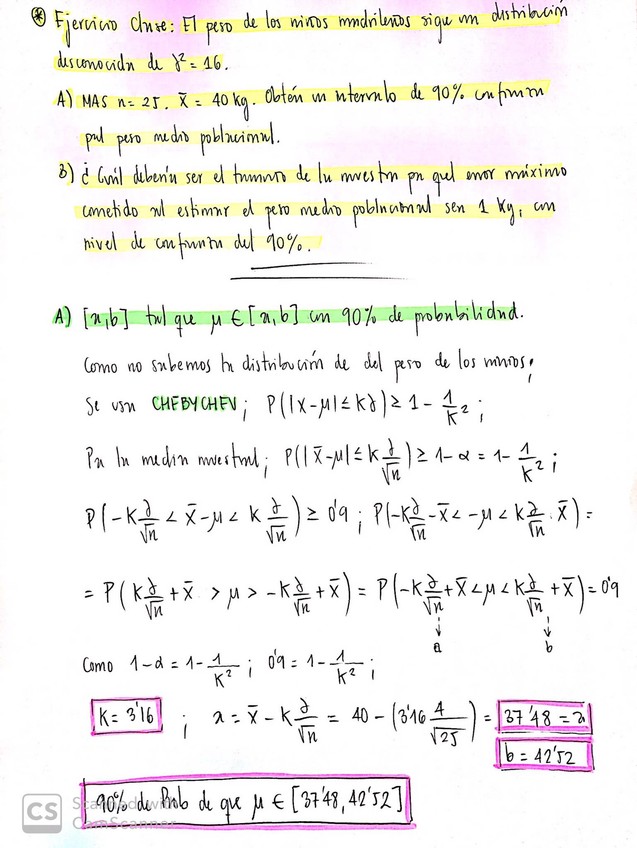 * Ejercicio Clase: El peso de los niños madrileños sigue un distribución
desconocida de σ² = 16.
A) MAS n = 25. x̄ = 40 kg. Obtén un intervalo de 90% confianza
pal peso medio poblacional.
B) ¿Cuál debería ser el tamaño de la muestra pa quel error máximo
cometido al estimar el peso medio poblacional sea 1 kg, con
nivel de confianza del 90%.
A) [a,b] tal que μ ∈ [a,b] con 90% de probabilidad.
Como no sabemos la distribución de del peso de los niños;
Se usa CHEBYCHEV; P(|x-μ| ≤ kσ) ≥ 1 - 1/k² ;
Pa la media muestral; P(|x̄-μ| ≤ k σ/√n) ≥ 1-α = 1 - 1/k² ;
P(-k σ/√n < x̄-μ < k σ/√n) ≥ 0'9 ; P(-k σ/√n - x̄ < -μ < k σ/√n · x̄) =
= P(k σ/√n + x̄ > μ > -k σ/√n + x̄) = P(-k σ/√n + x̄ < μ < k σ/√n + x̄) = 0'9
a b
Como 1-α = 1 - 1/k² ; 0'9 = 1 - 1/k² ;
K = 3'16 ; a = x̄ - k σ/√n = 40 - (3'16 4/√25) = 37'48 = a
b = 42'52
90% de Prob de que μ ∈ [37'48, 42'52]
CS Scanned with
CamScanner